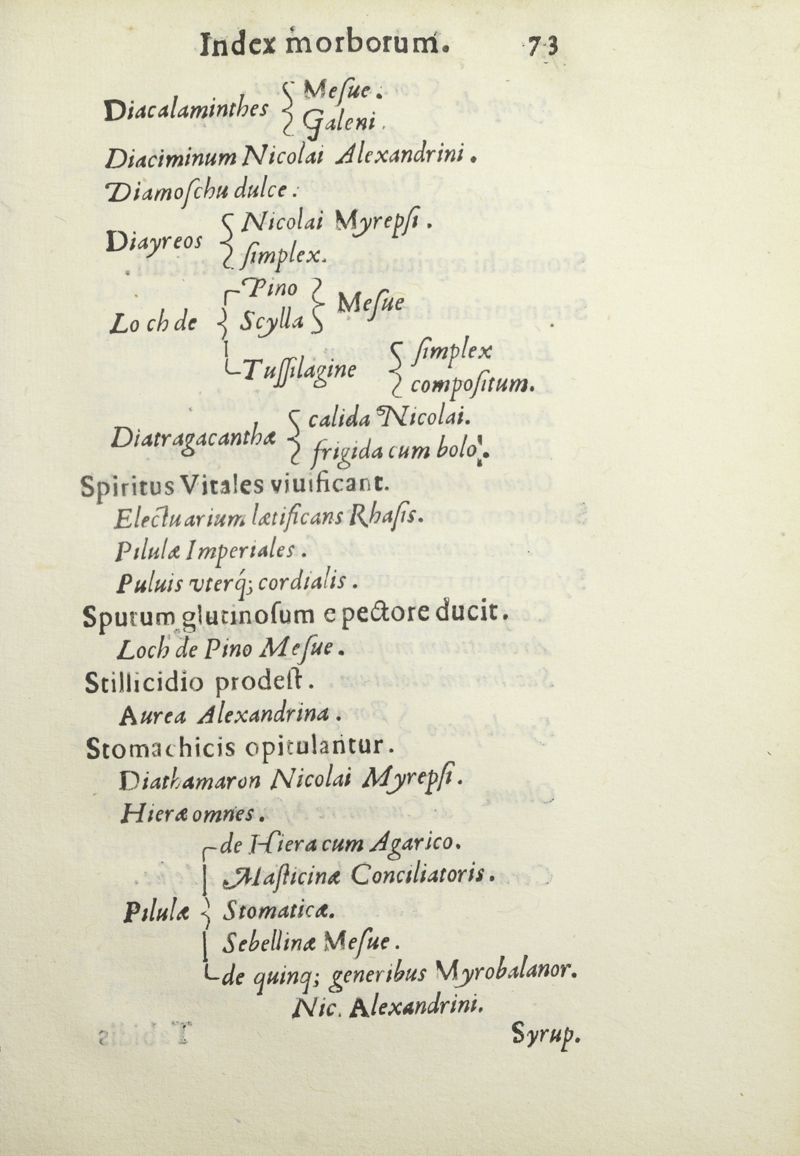 Index morborum. 73
Diacalaminthes { Meſue.
Galeni.
Diaciminum Nicolai Alexandrini.
Diamoſchu dulce.
Diayreos { Nicolai Myrepſi.
ſimplex.
Loch de { Pino
Scylla } Meſue
Tuſſilagine { ſimplex
compoſitum.
Diatragacanthæ { calida Nicolai.
frigida cum bolo.
Spiritus Vitales viuificant.
Electuarium lætificans Rhaſis.
Pilulæ Imperiales.
Puluis vterq; cordialis.
Sputum glutinoſum e pectore ducit.
Loch de Pino Meſue.
Stillicidio prodeſt.
Aurea Alexandrina.
Stomachicis opitulantur.
Diathamaron Nicolai Myrepſi.
Hieræ omnes.
de Hiera cum Agarico.
Maſticinæ Conciliatoris.
Pilulæ { Stomaticæ.
Sebellinæ Meſue.
de quinq; generibus Myrobalanor.
Nic. Alexandrini.
Syrup.